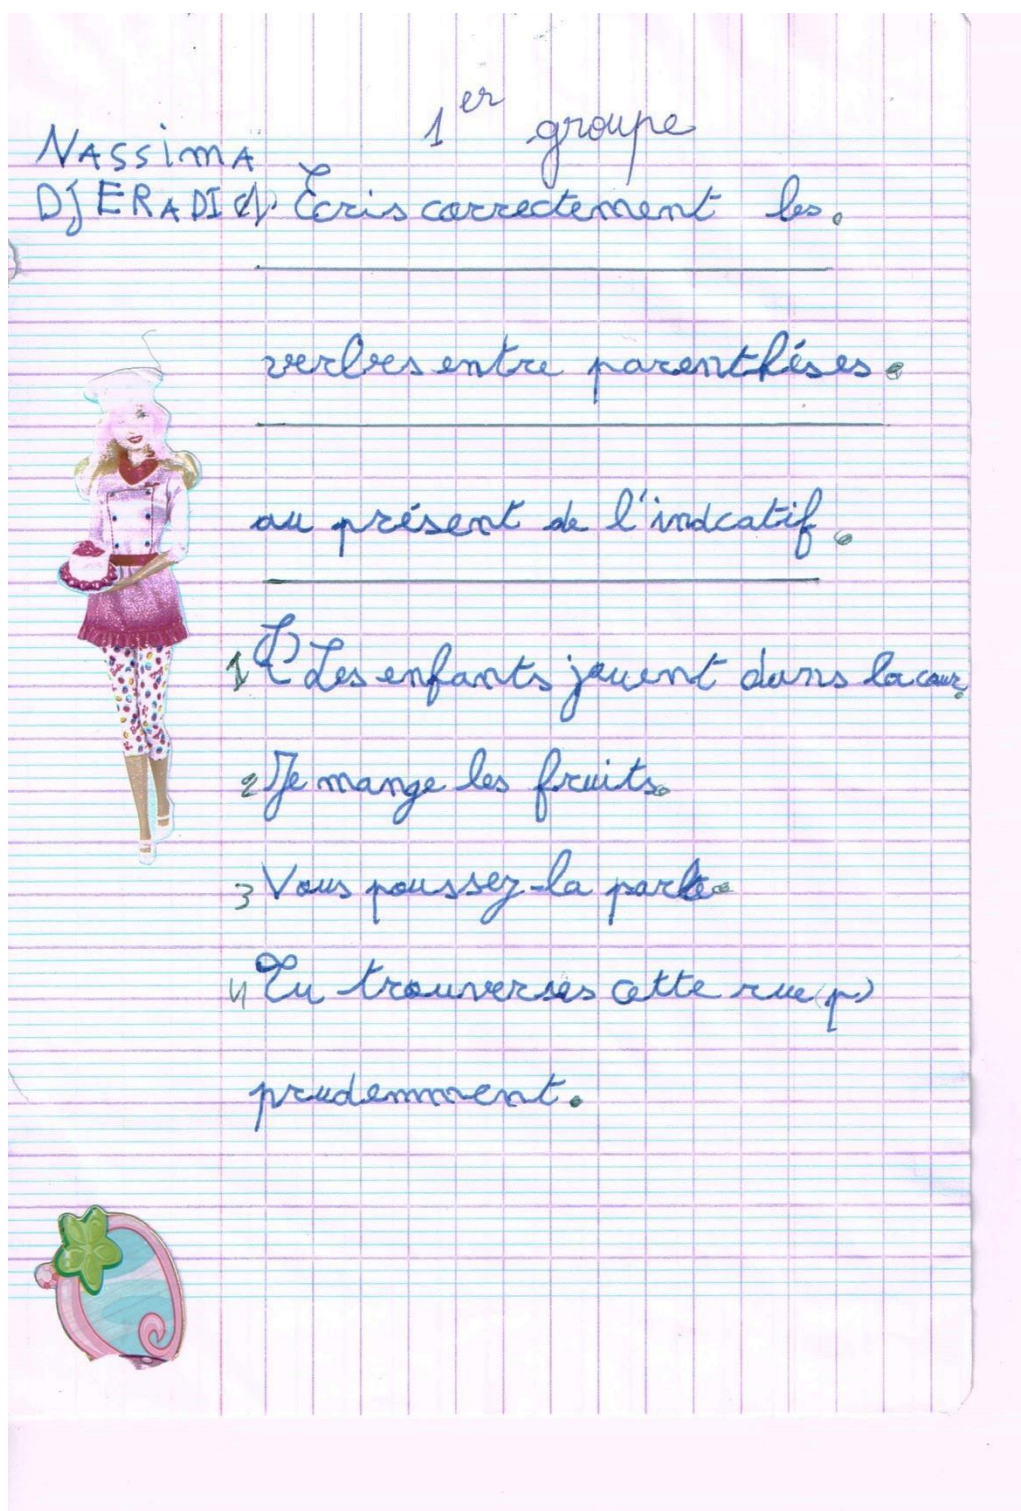 1er groupe
NASSIMA
DJERADI
Écris correctement les.
verbes entre parenthéses.
au présent de l'indcatif.
1 Les enfants jouent dans la cour.
2 Je mange les fruits.
3 Vous poussez-la porte.
4 Tu trouverses cette rue (p)
prudemment.